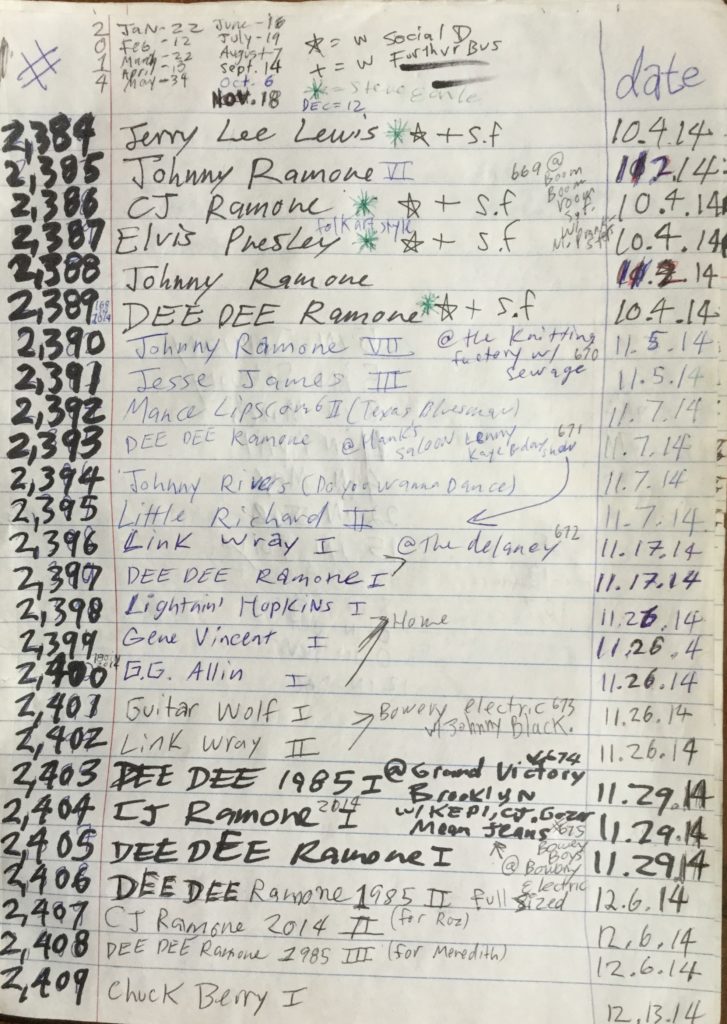 2 Jan - 22 June - 16
0 Feb. - 12 July - 19
1 March - 22 August - 7
4 April - 10 Sept. 14
May - 34 Oct. 6
Nov. 18
☆ = w Social D
+ = w Furthur Bus
* = Steve Earle
DEC = 12
# date
2,384 Jerry Lee Lewis *☆ + S.f 10.4.14
2,385 Johnny Ramone VI 669 @ Boom Boom room S.f. .14
2,386 CJ Ramone * ☆ + S.f 10.4.14
2,387 Elvis Presley folk art style * ☆ + S.f 10.4.14
2,388 Johnny Ramone .14
2,389 DEE DEE Ramone *☆ + S.f 10.4.14
2,390 Johnny Ramone VII @ the Knitting factory w/ 670 Sewage 11.5.14
2,391 Jesse James III 11.5.14
2,392 Mance Lipscomb II (Texas Bluesman) 11.7.14
2,393 DEE DEE Ramone @ Hank's Saloon Lenny Kaye Bday show 671 11.7.14
2,394 Johnny Rivers (Do you wanna Dance) 11.7.14
2,395 Little Richard II 11.7.14
2,396 Link Wray I @ The delancy 672 11.17.14
2,397 DEE DEE Ramone I 11.17.14
2,398 Lightnin' Hopkins I 11.26.14
2,399 Gene Vincent I Home 11.26.4
2,400 G.G. Allin I 11.26.14
2,401 Guitar Wolf I Bowery electric 673 w/ Johnny Black. 11.26.14
2,402 Link Wray II 11.26.14
2,403 DEE DEE 1985 I @ Grand Victory 674 Brooklyn 11.29.14
2,404 CJ Ramone 2014 I w/ KEPI, CJ, Gozer Mean Jeans 11.29.14
2,405 DEE DEE Ramone I 675 Bowery Boys @ Bowery Electric 11.29.14
2,406 DEE DEE Ramone 1985 II full sized 12.6.14
2,407 CJ Ramone 2014 II (for Roz) 12.6.14
2,408 DEE DEE Ramone 1985 III (for Meredith) 12.6.14
2,409 Chuck Berry I 12.13.14